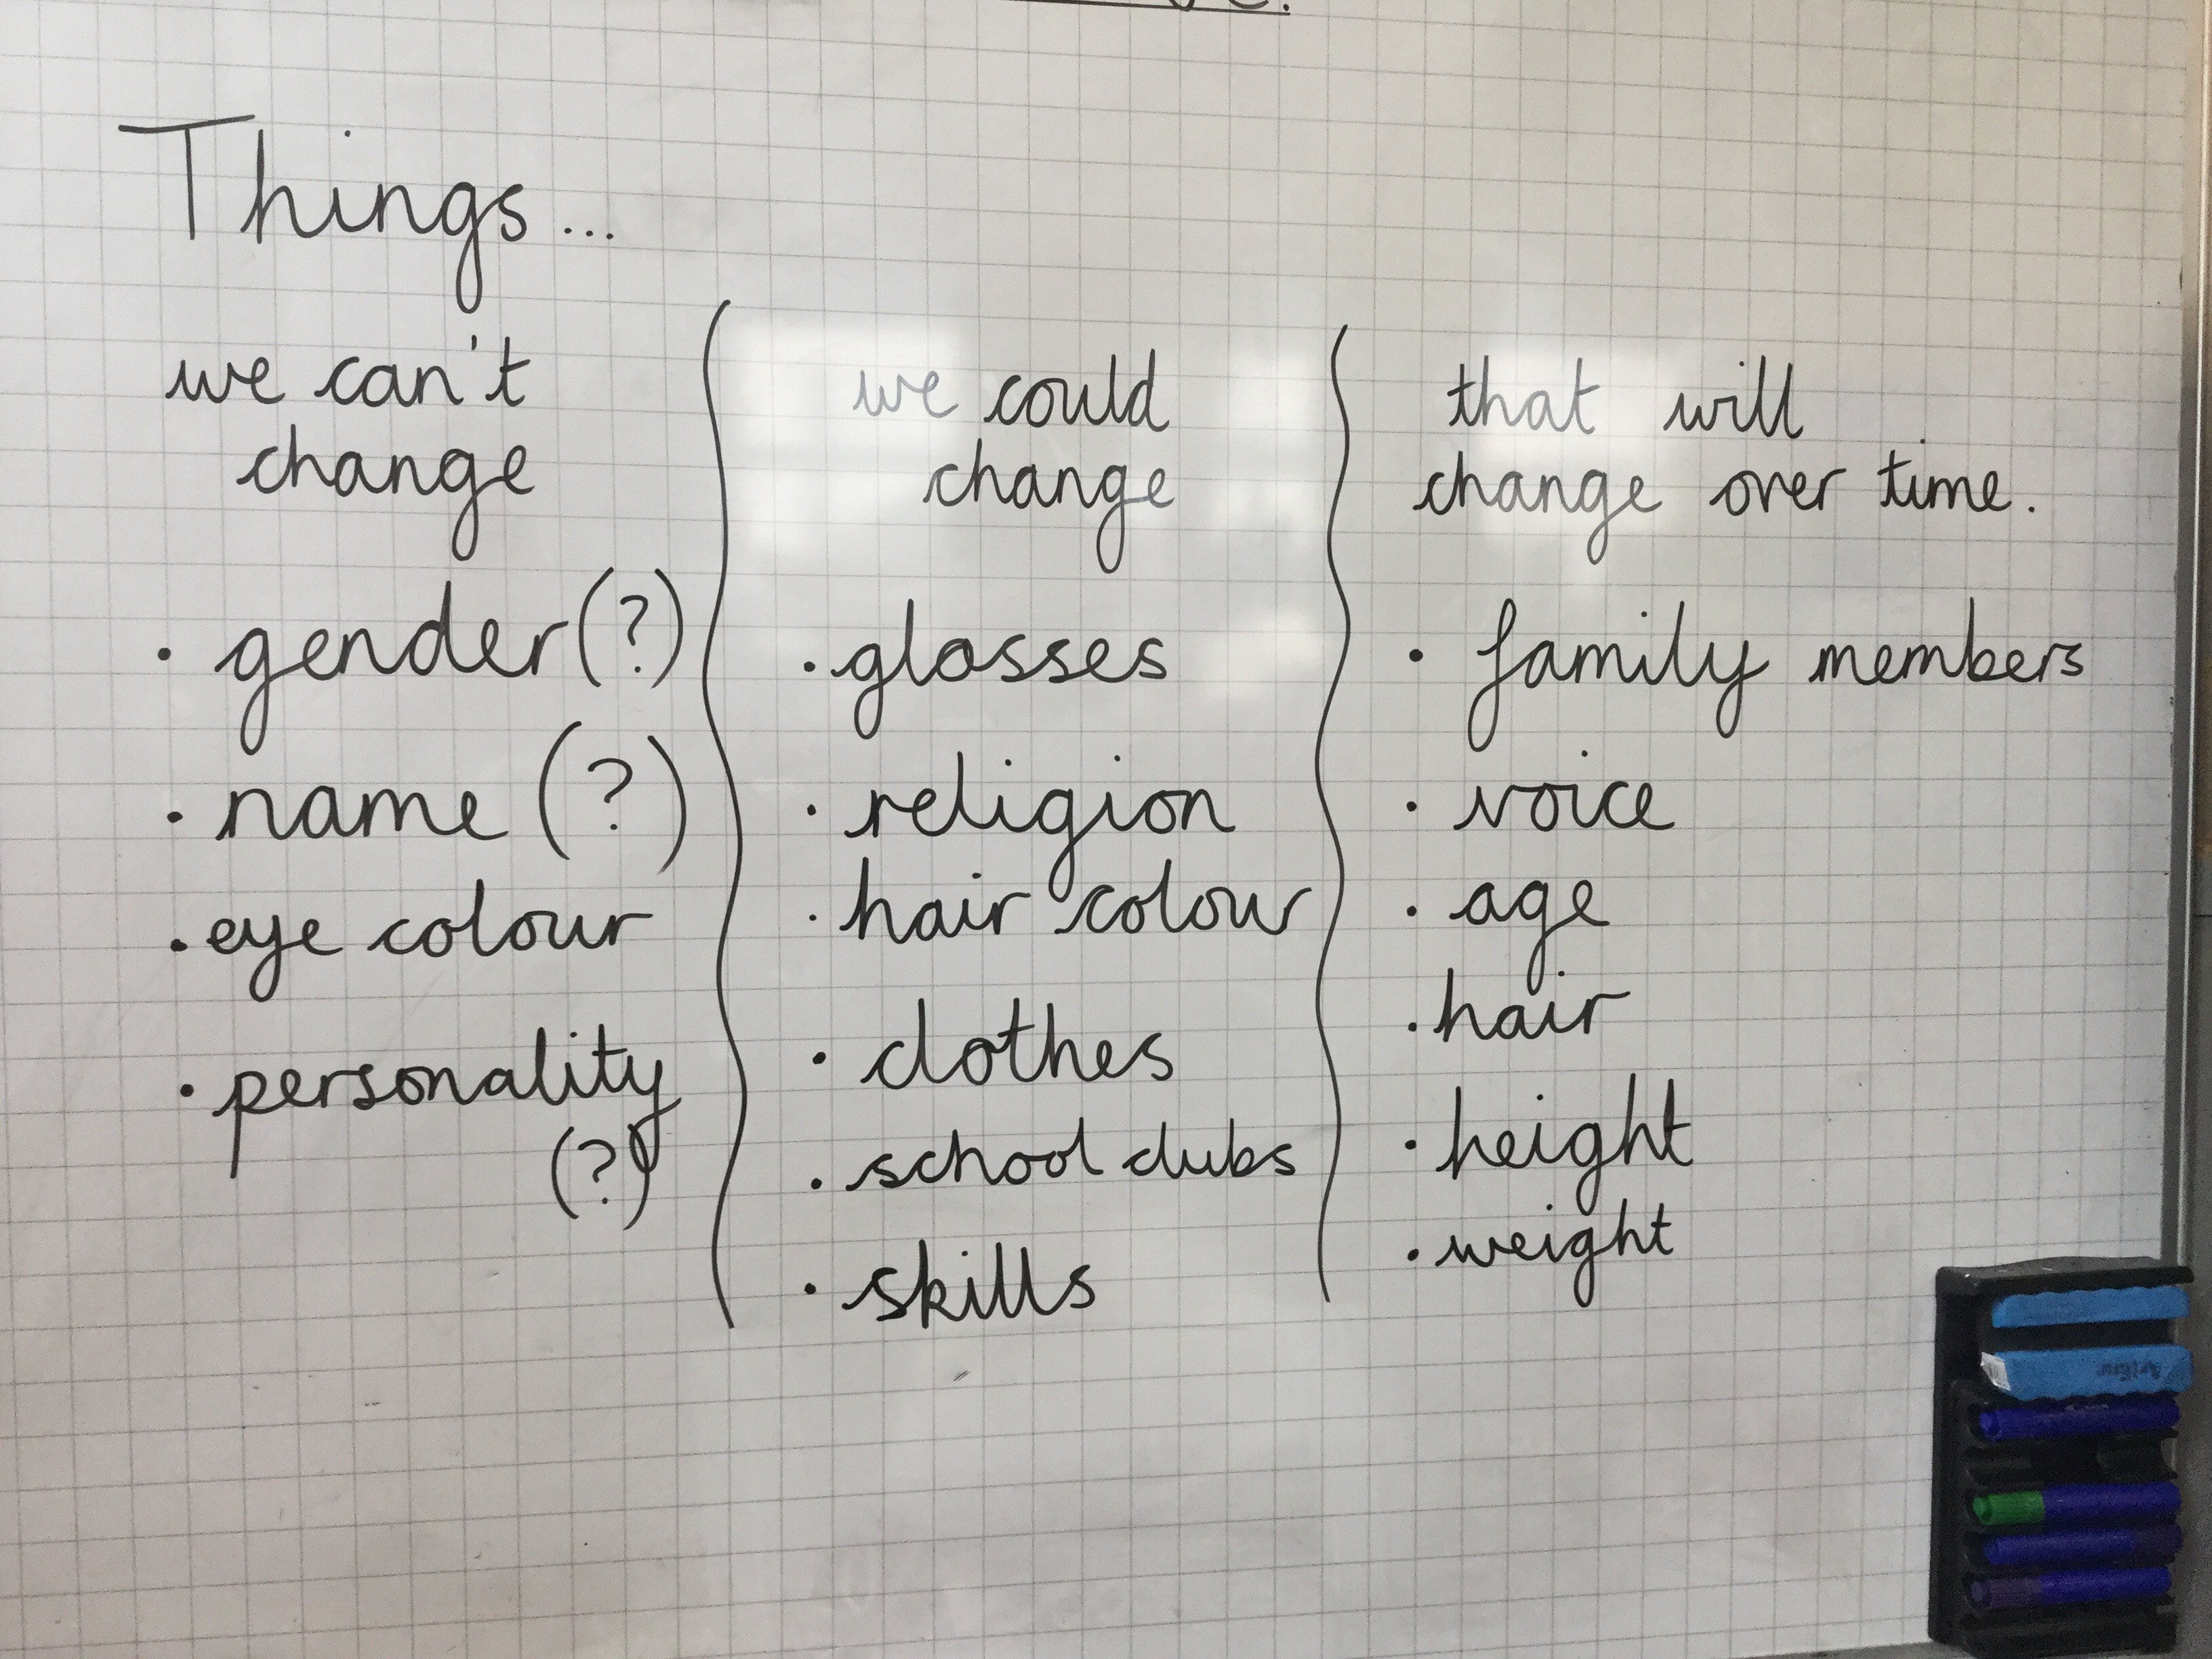 Things...
we can't
change
• gender (?)
• name (?)
• eye colour
• personality
(?)
we could
change
• glasses
• religion
• hair colour
• clothes
• school clubs
• skills
that will
change over time.
• family members
• voice
• age
• hair
• height
• weight